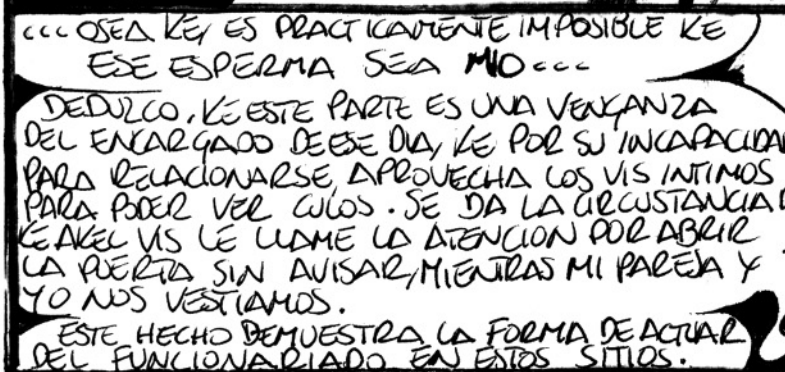 ... OSEA KE, ES PRACTICAMENTE IMPOSIBLE KE
ESE ESPERMA SEA MIO...
DEDUZCO, KE ESTE PARTE ES UNA VENGANZA
DEL ENCARGADO DE ESE DIA, KE POR SU INCAPACIDAD
PARA RELACIONARSE, APROVECHA LOS VIS INTIMOS
PARA PODER VER CULOS. SE DA LA CIRCUSTANCIA D
KE AKEL VIS LE LLAME LA ATENCION POR ABRIR
LA PUERTA SIN AVISAR, MIENTRAS MI PAREJA Y
YO NOS VESTIAMOS.
ESTE HECHO DEMUESTRA LA FORMA DE ACTUAR
DEL FUNCIONARIADO EN ESTOS SITIOS.